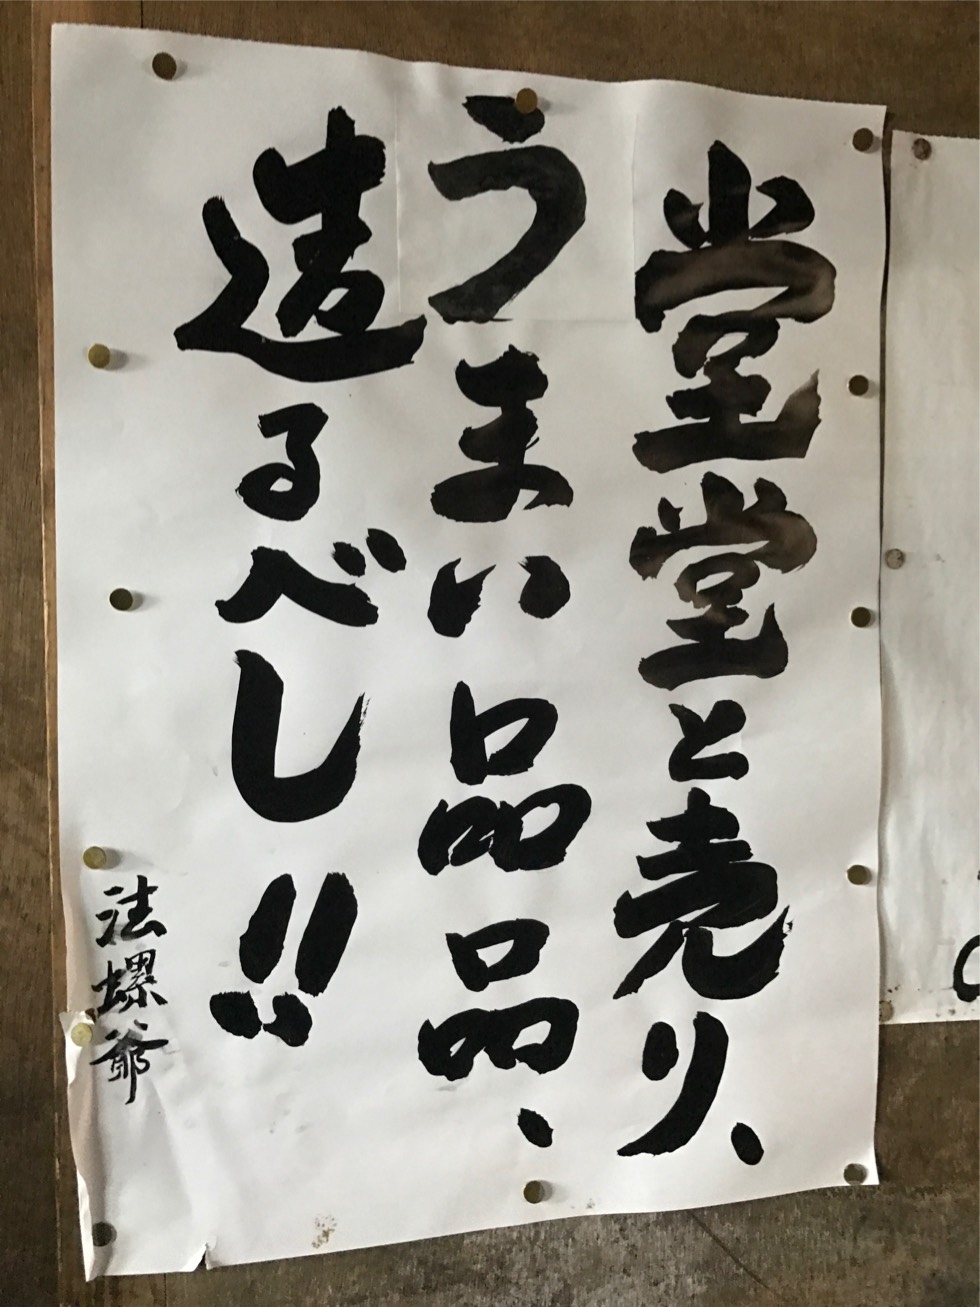 堂堂と売り、
うまい品品、
造るべし!!
法螺爺